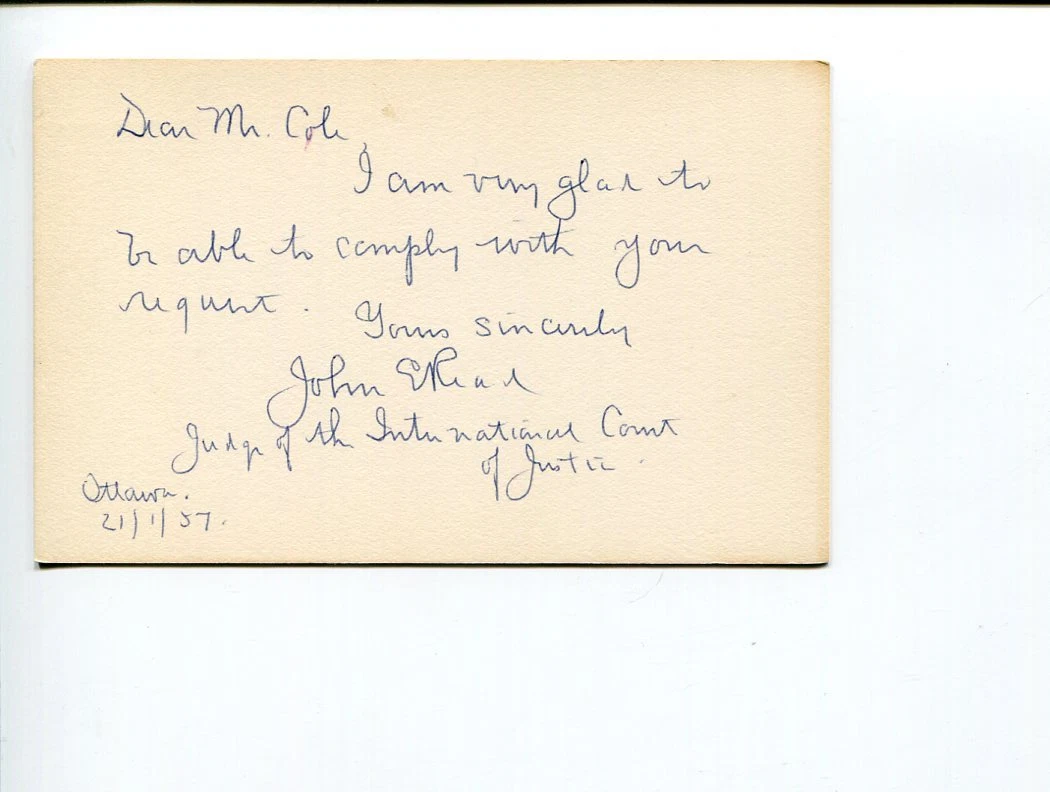 Dear Mr. Cole,
I am very glad to
be able to comply with your
request.
Yours sincerely
John E Read
Judge of the International Court
of Justice.
Ottawa.
21/1/57.